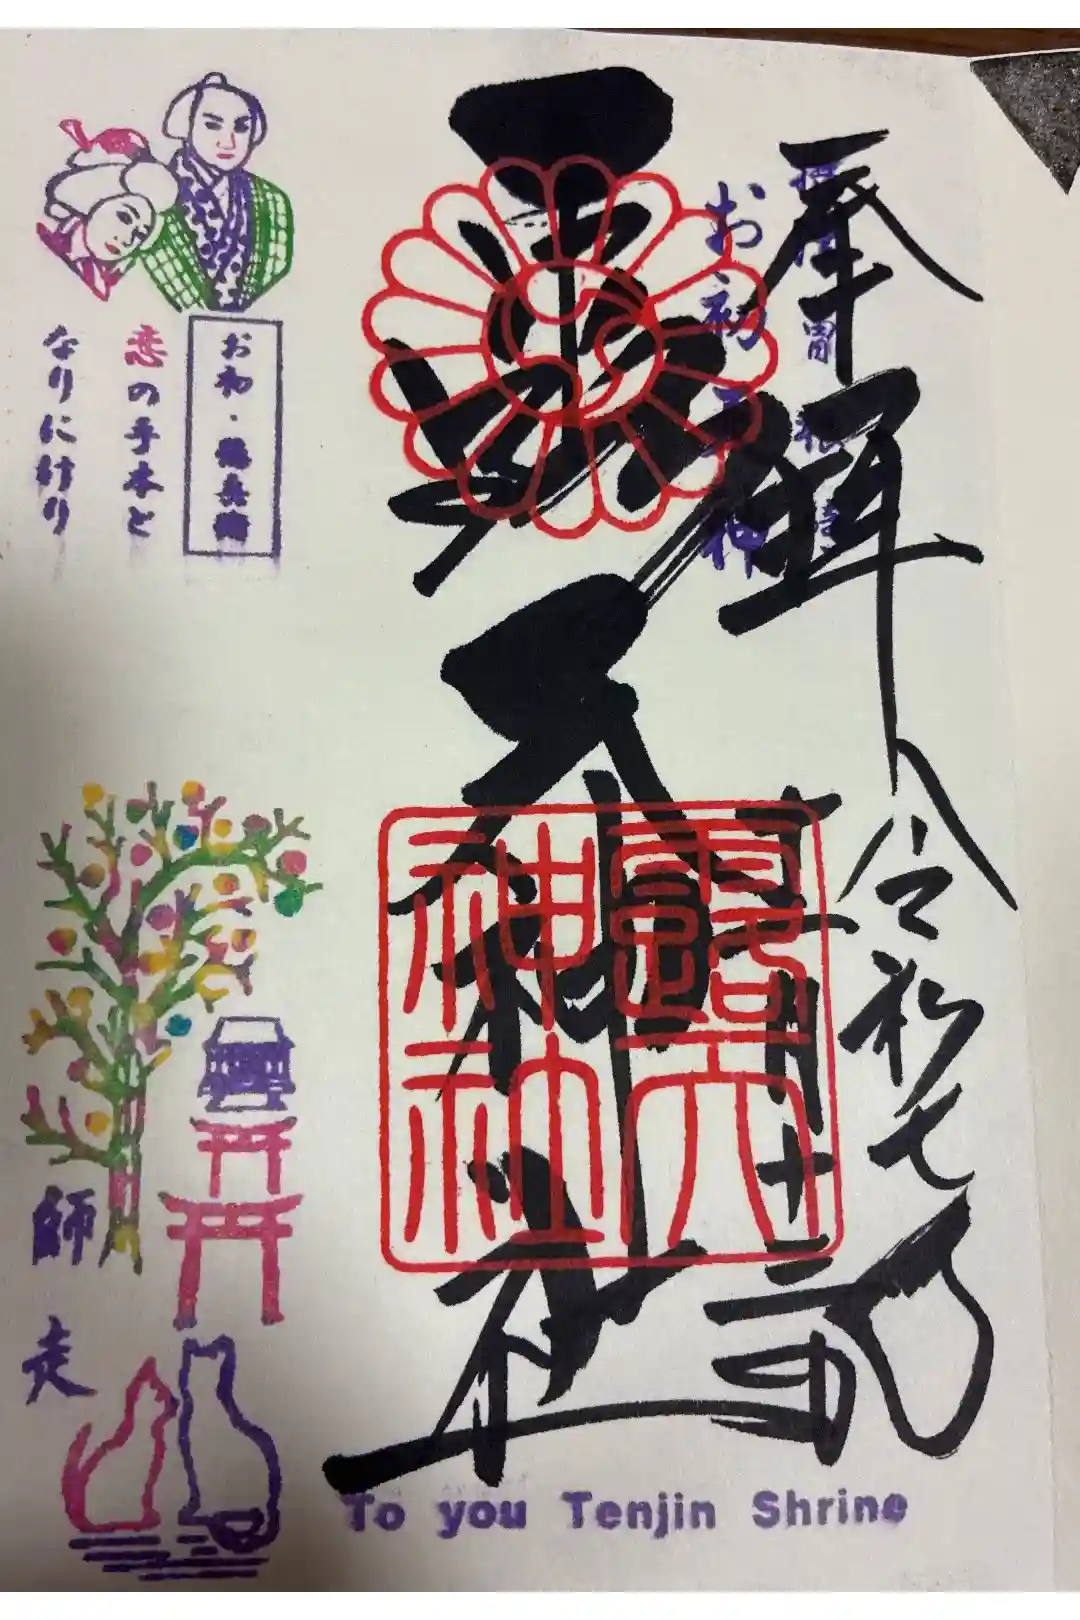 奉拝
令和七年
十二月十二日
摂津國
お初天神
露天神社
露天神社
お初・徳兵衛
恋の手本と
なりにけり
師走
To you Tenjin Shrine